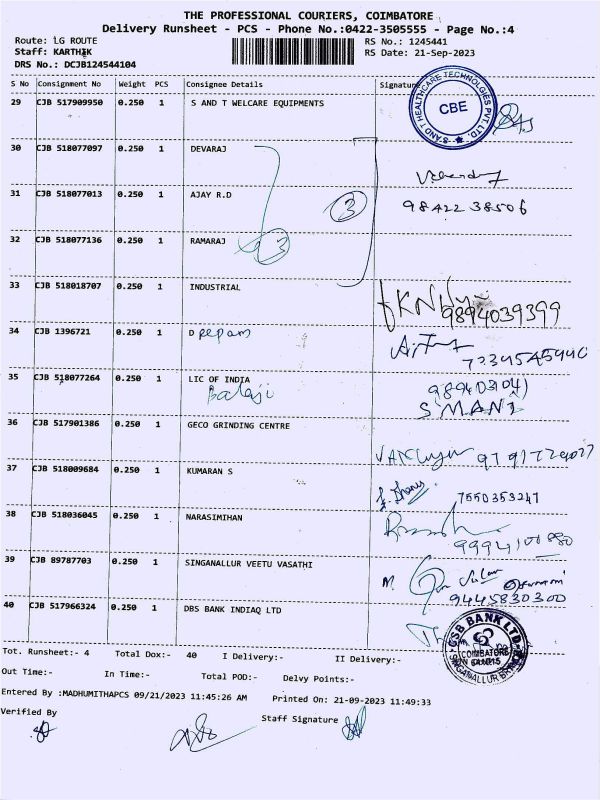 THE PROFESSIONAL COURIERS, COIMBATORE
Delivery Runsheet - PCS - Phone No.:0422-3505555 - Page No.:4
Route: LG ROUTE
RS No.: 1245441
Staff: KARTHIK
RS Date: 21-Sep-2023
DRS No.: DCJB124544104
S No Consignment No Weight PCS Consignee Details Signature
S AND T HEALTHCARE TECHNOLOGIES PVT. LTD.
CBE
29 CJB 517909950 0.250 1 S AND T WELCARE EQUIPMENTS
30 CJB 518077097 0.250 1 DEVARAJ
31 CJB 518077013 0.250 1 AJAY R.D 3 98422 38506
32 CJB 518077136 0.250 1 RAMARAJ 3
33 CJB 518018707 0.250 1 INDUSTRIAL
9894039399
34 CJB 1396721 0.250 1 D eepam
35 CJB 518077264 0.250 1 LIC OF INDIA
Balaji S MANI
36 CJB 517901386 0.250 1 GECO GRINDING CENTRE
37 CJB 518009684 0.250 1 KUMARAN S
7550353247
38 CJB 518036045 0.250 1 NARASIMIHAN
39 CJB 89787703 0.250 1 SINGANALLUR VEETU VASATHI
9445830300
40 CJB 517966324 0.250 1 DBS BANK INDIAQ LTD
COIMBATORE
SINGANALLUR
Tot. Runsheet:- 4 Total Dox:- 40 I Delivery:- II Delivery:-
Out Time:- In Time:- Total POD:- Delvy Points:-
Entered By :MADHUMITHAPCS 09/21/2023 11:45:26 AM Printed On: 21-09-2023 11:49:33
Verified By Staff Signature